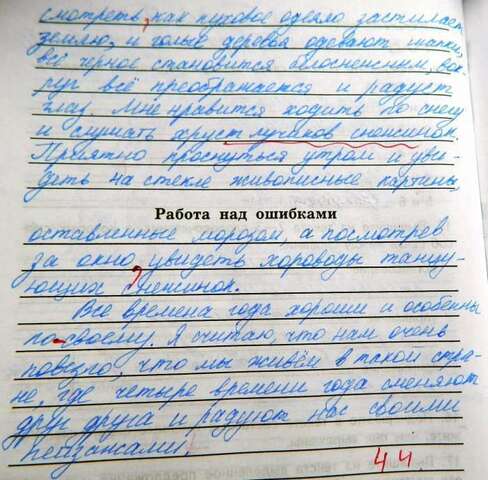 смотреть, как пуховое одеяло застилает
землю, и голые деревья одевают шапки,
всё чёрное становится белоснежным, вок-
руг всё преображается и радует
глаз. Мне нравится ходить по снегу
и слушать хруст лучиков снежинок.
Приятно проснуться утром и уви-
деть на стекле живописные картины,
Работа над ошибками
оставленные морозом, а посмотрев
за окно, увидеть хороводы танцу-
ющих снежинок.
Все времена года хороши и особенны
по-своему. Я считаю, что нам очень
повезло, что мы живём в такой стра-
не, где четыре времени года сменяют
друг друга и радуют нас своими
пейзажами.
44